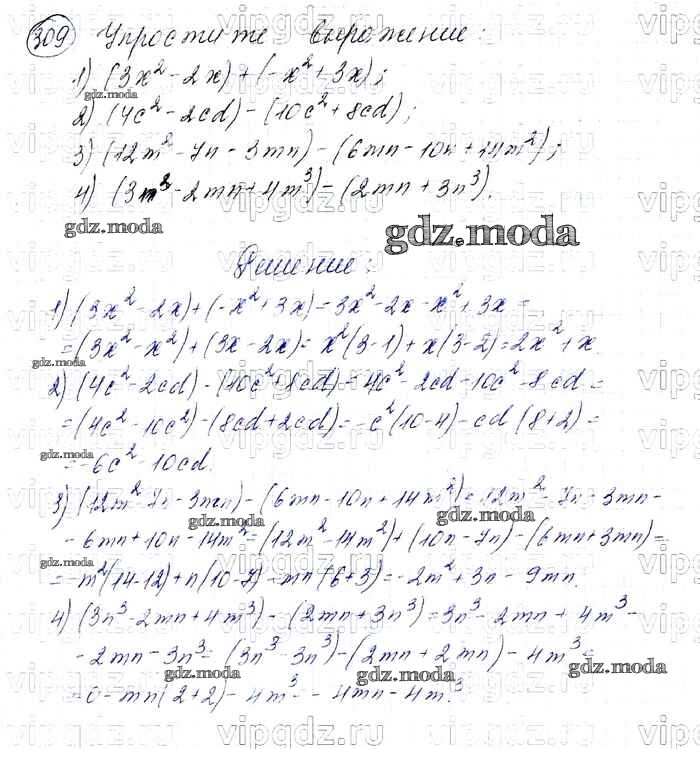 309 Упростите выражение:
1) (3x² - 2x) + (-x² + 3x);
2) (4c² - 2cd) - (10c² + 8cd);
3) (12m² - 7n - 3mn) - (6mn - 10n + 14m²);
4) (3n³ - 2mn + 4m³) - (2mn + 3n³).
gdz.moda
Решение:
1) (3x² - 2x) + (-x² + 3x) = 3x² - 2x - x² + 3x =
= (3x² - x²) + (3x - 2x) = x²(3-1) + x(3-2) = 2x² + x.
2) (4c² - 2cd) - (10c² + 8cd) = 4c² - 2cd - 10c² - 8cd =
= (4c² - 10c²) - (8cd + 2cd) = -c²(10-4) - cd(8+2) =
= -6c² - 10cd.
3) (12m² - 7n - 3mn) - (6mn - 10n + 14m²) = 12m² - 7n - 3mn -
- 6mn + 10n - 14m² = (12m² - 14m²) + (10n - 7n) - (6mn + 3mn) =
= -m²(14-12) + n(10-7) - mn(6+3) = -2m² + 3n - 9mn.
4) (3n³ - 2mn + 4m³) - (2mn + 3n³) = 3n³ - 2mn + 4m³ -
- 2mn - 3n³ = (3n³ - 3n³) - (2mn + 2mn) - 4m³ =
= 0 - mn(2+2) - 4m³ = - 4mn - 4m³.
vipgdz.ru